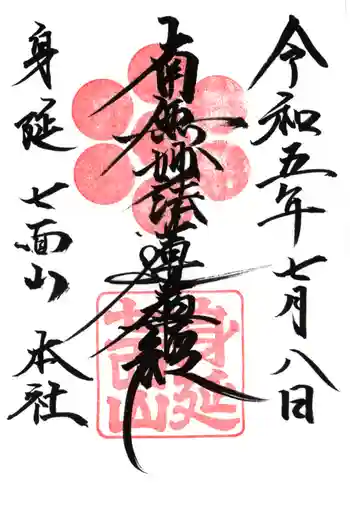 令和五年七月八日
南無妙法蓮華経
身延 七面山 本社
身延
七面山